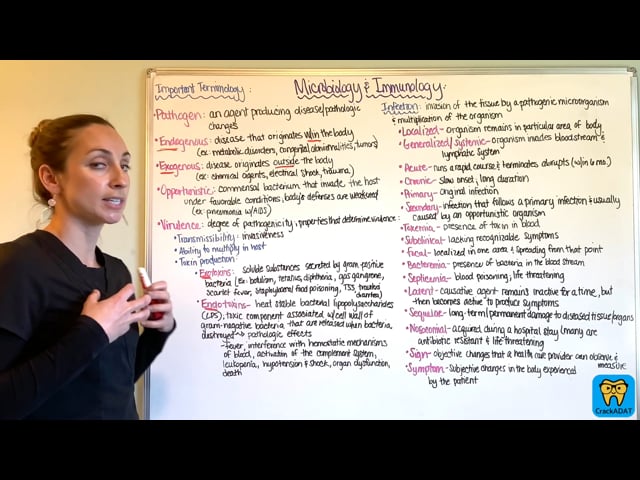 Important Terminology:
Microbiology & Immunology:
Pathogen: an agent producing disease/pathologic
changes
• Endogenous: disease that originates w/in the body
(ex: metabolic disorders, congenital abnormalities, tumors)
• Exogenous: disease originates outside the body
(ex: chemical agents, electrical shock, trauma)
Opportunistic: commensal bacterium that invade the host
under favorable conditions, body's defenses are weakened
(ex: pneumonia w/AIDS)
Virulence: degree of pathogenicity, properties that determine virulence:
• Transmissibility: invasiveness
• Ability to multiply in host
• Toxin production
• Exotoxins: soluble substances secreted by gram-positive
bacteria (ex: botulism, tetanus, diphtheria, gas gangrene,
scarlet fever, staphylococcal food poisoning, TSS,
diarrhea)
• Endotoxins- heat stable bacterial lipopolysaccharides
(LPS), toxic component associated w/cell wall of
gram-negative bacteria that are released when bacteria
destroyed → pathologic effects
- Fever, interference with hemostatic mechanisms
of blood, activation of the complement system,
leukopenia, hypotension & shock, organ dysfunction,
death
Infection: invasion of the tissue by a pathogenic microorganism
& multiplication of the organism
• Localized- organism remains in particular area of body
• Generalized/Systemic- organism invades bloodstream &
lymphatic system
• Acute- runs a rapid course & terminates abruptly (w/in 6 mo.)
• Chronic- slow onset, long duration
• Primary- original infection
• Secondary- infection that follows a primary infection & usually
caused by an opportunistic organism
• Toxemia- presence of toxin in blood
• Subclinical- lacking recognizable symptoms
• Focal- localized in one area & spreading from that point
• Bacteremia- presence of bacteria in the blood stream
• Septicemia- blood poisoning, life threatening
• Latent- causative agent remains inactive for a time, but
then becomes active to produce symptoms
• Sequelae- long-term/permanent damage to diseased tissue/organs
• Nosocomial- acquired during a hospital stay (many are
antibiotic resistant & life threatening
• Sign- objective changes that a health care provider can observe &
measure
• Symptom- Subjective changes in the body experienced
by the patient
CrackADAT